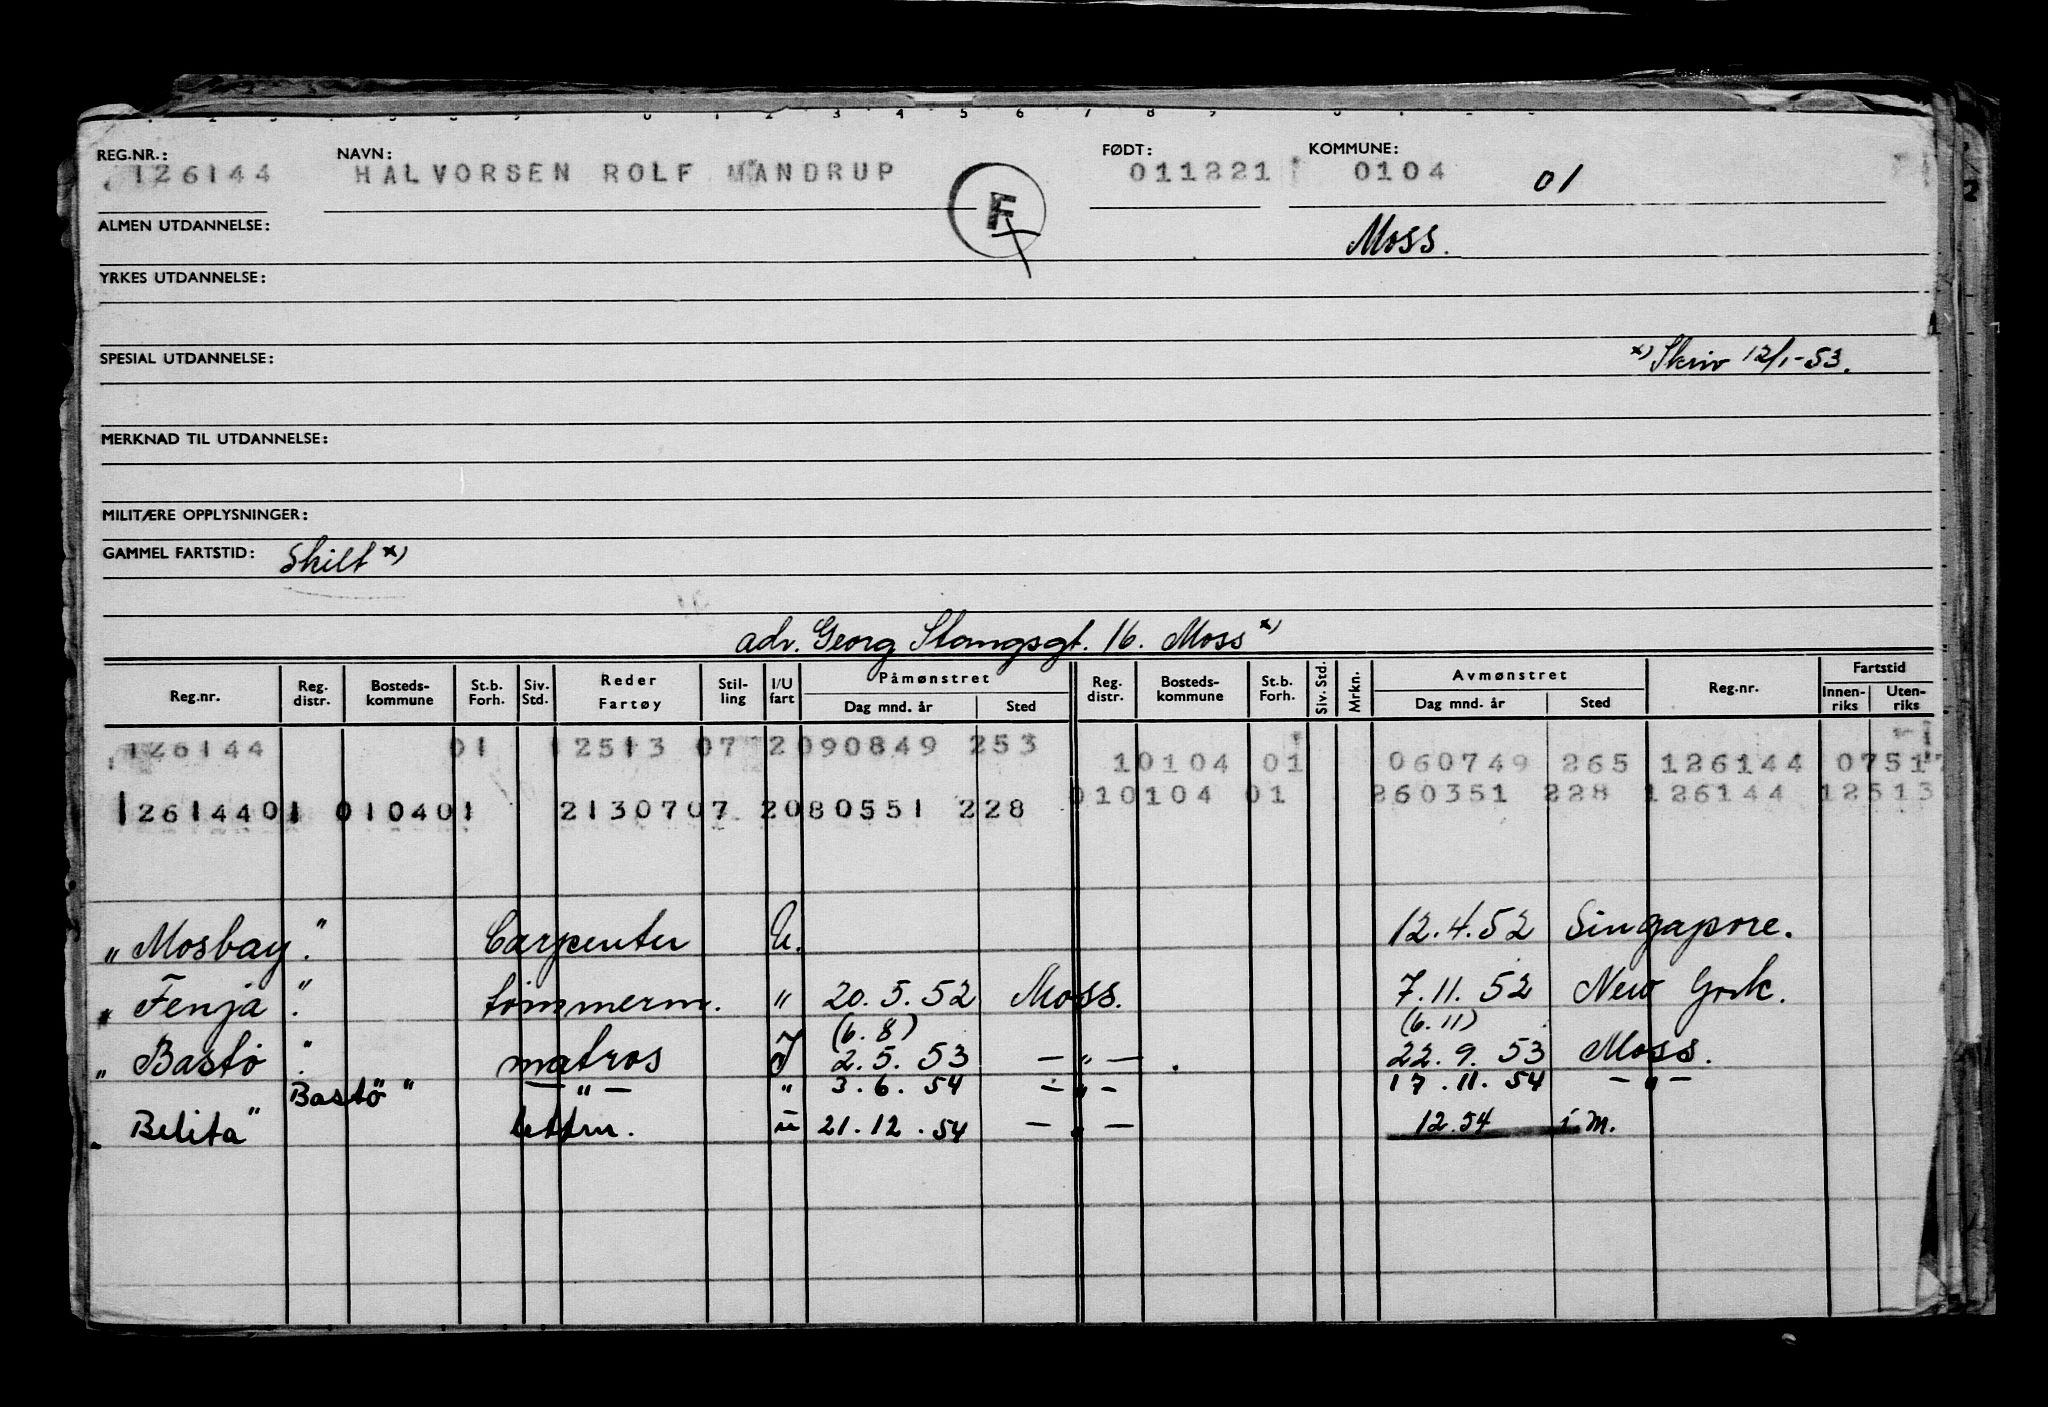 REG.NR.: 126144 NAVN: HALVORSEN ROLF MANDRUP FØDT: 011221 KOMMUNE: 0104 01
F
ALMEN UTDANNELSE: Moss.
YRKES UTDANNELSE:
SPESIAL UTDANNELSE: x) Skriv 12/1-53.
MERKNAD TIL UTDANNELSE:
MILITÆRE OPPLYSNINGER:
GAMMEL FARTSTID: Skilt x)
adr. Georg Stangsgt. 16. Moss x)
Reg.nr. Reg. distr. Bosteds-kommune St.b. Forh. Siv. Std. Reder Fartøy Stil-ling I/U fart Påmønstret Dag mnd. år Sted Reg. distr. Bosteds-kommune St.b. Forh. Siv. Std. Mrkn. Avmønstret Dag mnd. år Sted Reg.nr. Fartstid Innen-riks Uten-riks
126144 01 12513 07 2090849 253
10104 01 060749 265 126144 07517
010104 01 260351 228 126144 12513
12614401 010401 2130707 2080551 228
"Mosbay". Carpenter U. 12.4.52 Singapore.
"Fenja". tømmerm. " 20.5.52 Moss. 7.11.52 New York.
(6.8) (6.11)
"Bastø". matros I 2.5.53 — " — . 22.9.53 Moss.
Bastö" — " — " 3.6.54 — " — 17.11.54 — " —
"Belita" lettm. u 21.12.54 — " — 12.54 i M.